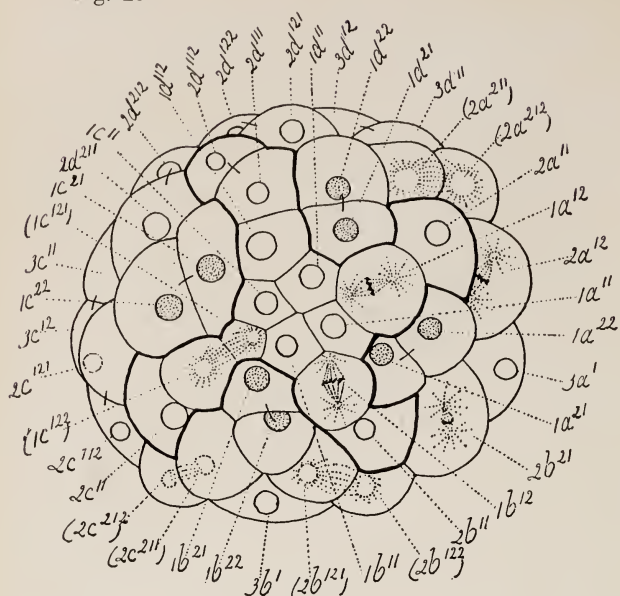 Fig.
2d²¹²
1d¹¹²
2d¹¹²
2d¹²²
2d¹¹¹
2d¹²¹
1d¹¹
3d¹²
1d²²
1d²¹
3d¹¹
(2a²¹¹)
(2a²¹²)
2a¹¹
1a¹²
2a¹²
1a¹¹
1a²²
3a¹
1a²¹
2b²¹
1b¹²
2b¹¹
(2b¹²²)
1b¹¹
(2b¹²¹)
3b¹
1b²²
1b²¹
(2c²¹¹)
(2c²¹²)
2c¹¹
2c¹¹²
(1c¹²²)
2c¹²¹
3c¹²
1c²²
3c¹¹
(1c¹²¹)
1c²¹
2d²¹¹